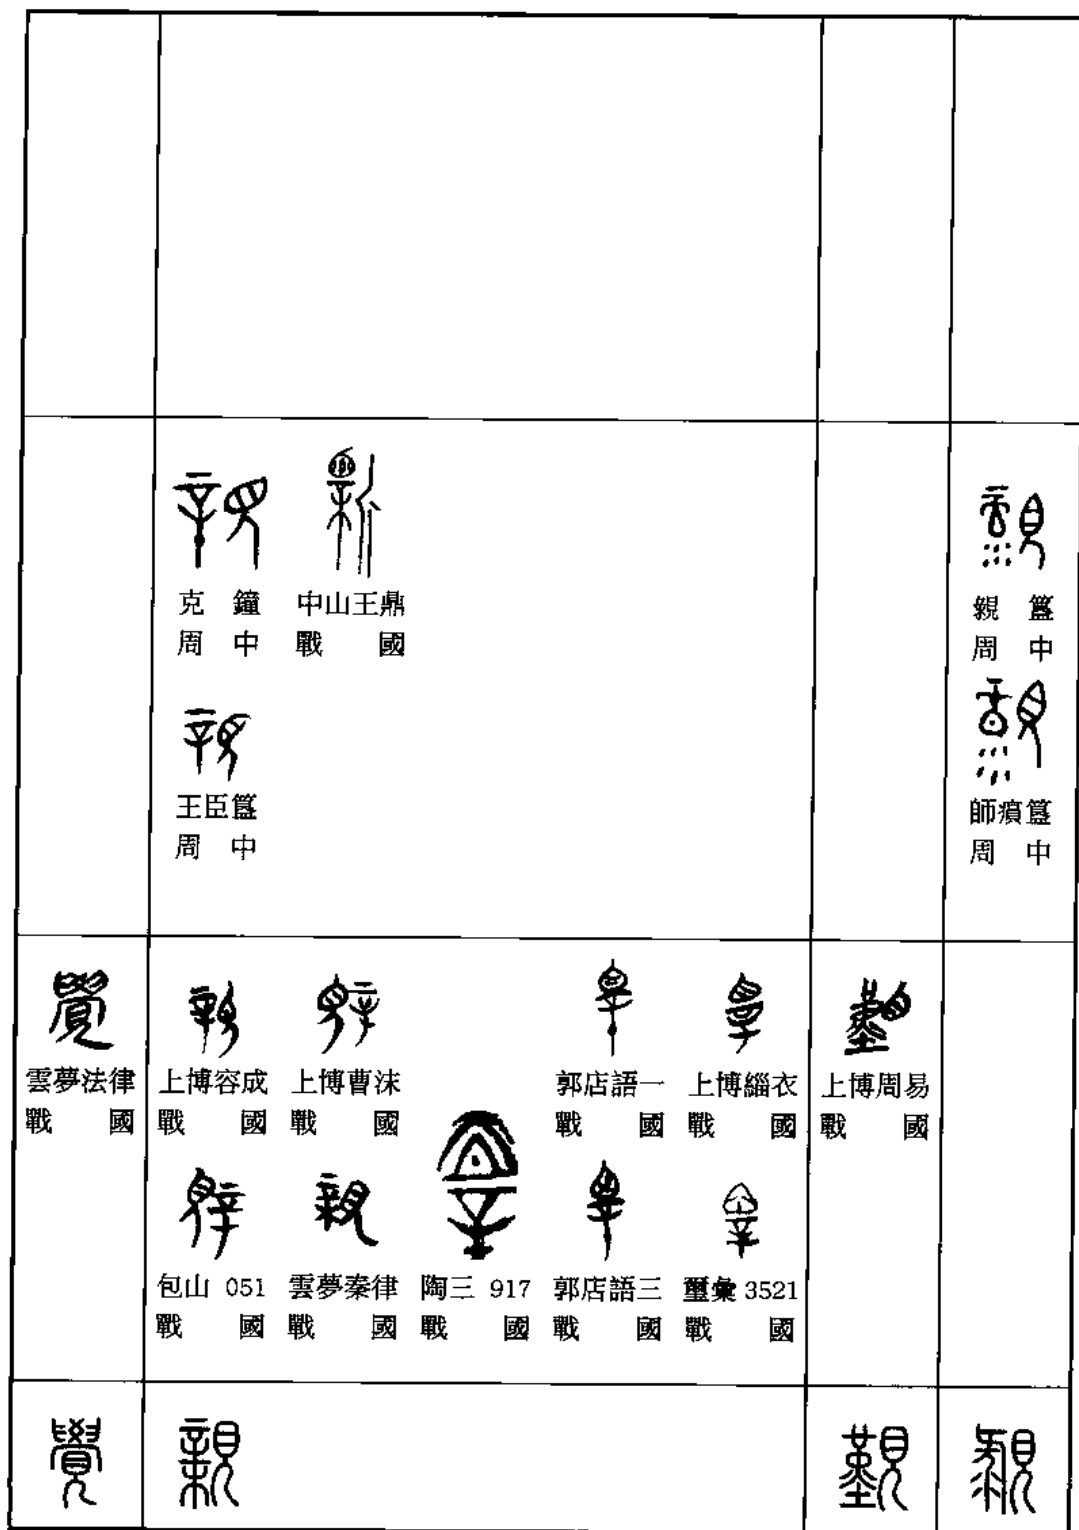 克鐘
周中
中山王鼎
戰國
親簋
周中
王臣簋
周中
師瘨簋
周中
雲夢法律
戰國
上博容成
戰國
上博曹沫
戰國
郭店語一
戰國
上博緇衣
戰國
上博周易
戰國
包山 051
戰國
雲夢秦律
戰國
陶三 917
戰國
郭店語三
戰國
璽彙 3521
戰國
覺
親
覲